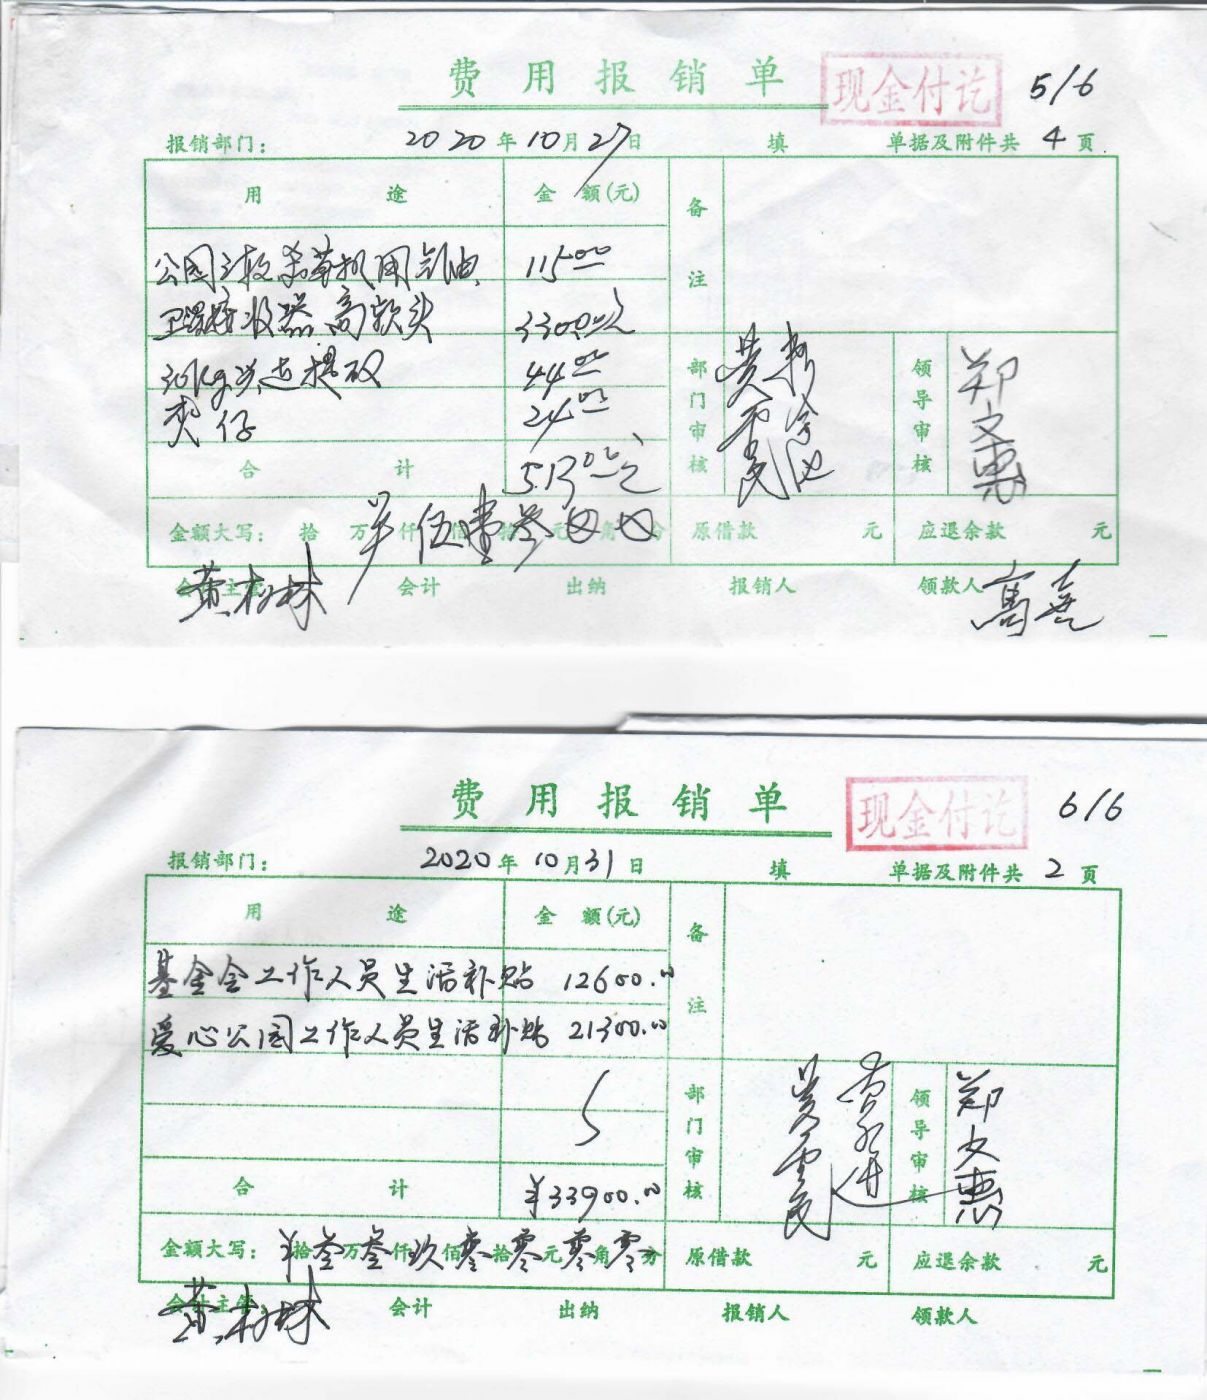 费用报销单
现金付讫
5/6
报销部门: 2020年10月27日 填 单据及附件共 4 页
用途 金额(元) 备注
公园 草机用汽油 115.00
卫 接收器 高 头 330.00
30kg 44.00
夹仔 24.00
合计 513.00元
部门审核 领导审核 郑文惠
金额大写: 拾万仟伍佰壹拾叁元角分 原借款 元 应退余款 元
会计主管 黄树林 会计 出纳 报销人 领款人
费用报销单
现金付讫
6/6
报销部门: 2020年10月31日 填 单据及附件共 2 页
用途 金额(元) 备注
基金会工作人员生活补贴 12600.00
爱心公园工作人员生活补贴 21300.00
合计 ¥33900.00
部门审核 领导审核 郑文惠
金额大写: ¥拾叁万叁仟玖佰零拾零元零角零分 原借款 元 应退余款 元
会计主管 黄树林 会计 出纳 报销人 领款人